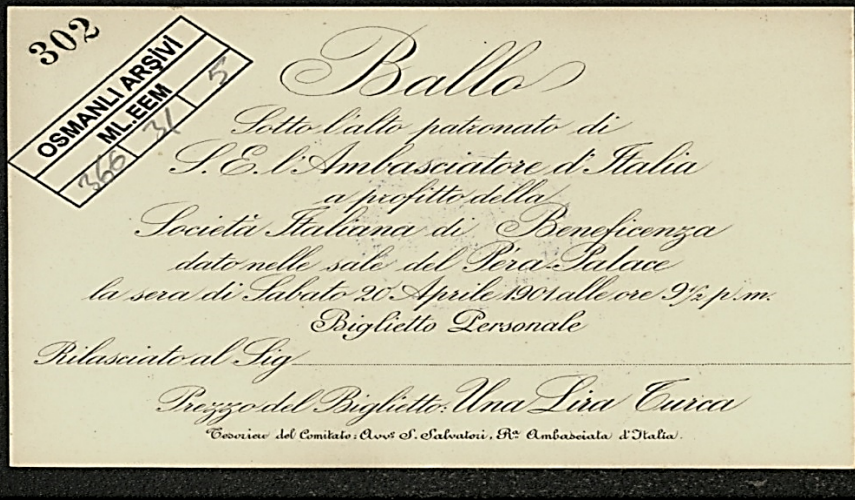 302
OSMANLI ARŞİVİ
ML.EEM
366 31 5
Ballo
Sotto l'alto patronato di
S. E. l'Ambasciatore d'Italia
a profitto della
Società Italiana di Beneficenza
dato nelle sale del Pèra-Palace
la sera di Sabato 20 Aprile 1901 alle ore 9 1/2 p.m.
Biglietto Personale
Rilasciato al Sig
Prezzo del Biglietto: Una Lira Turca
Tesoriere del Comitato: Avvº S. Salvatori, Rª Ambasciata d'Italia.